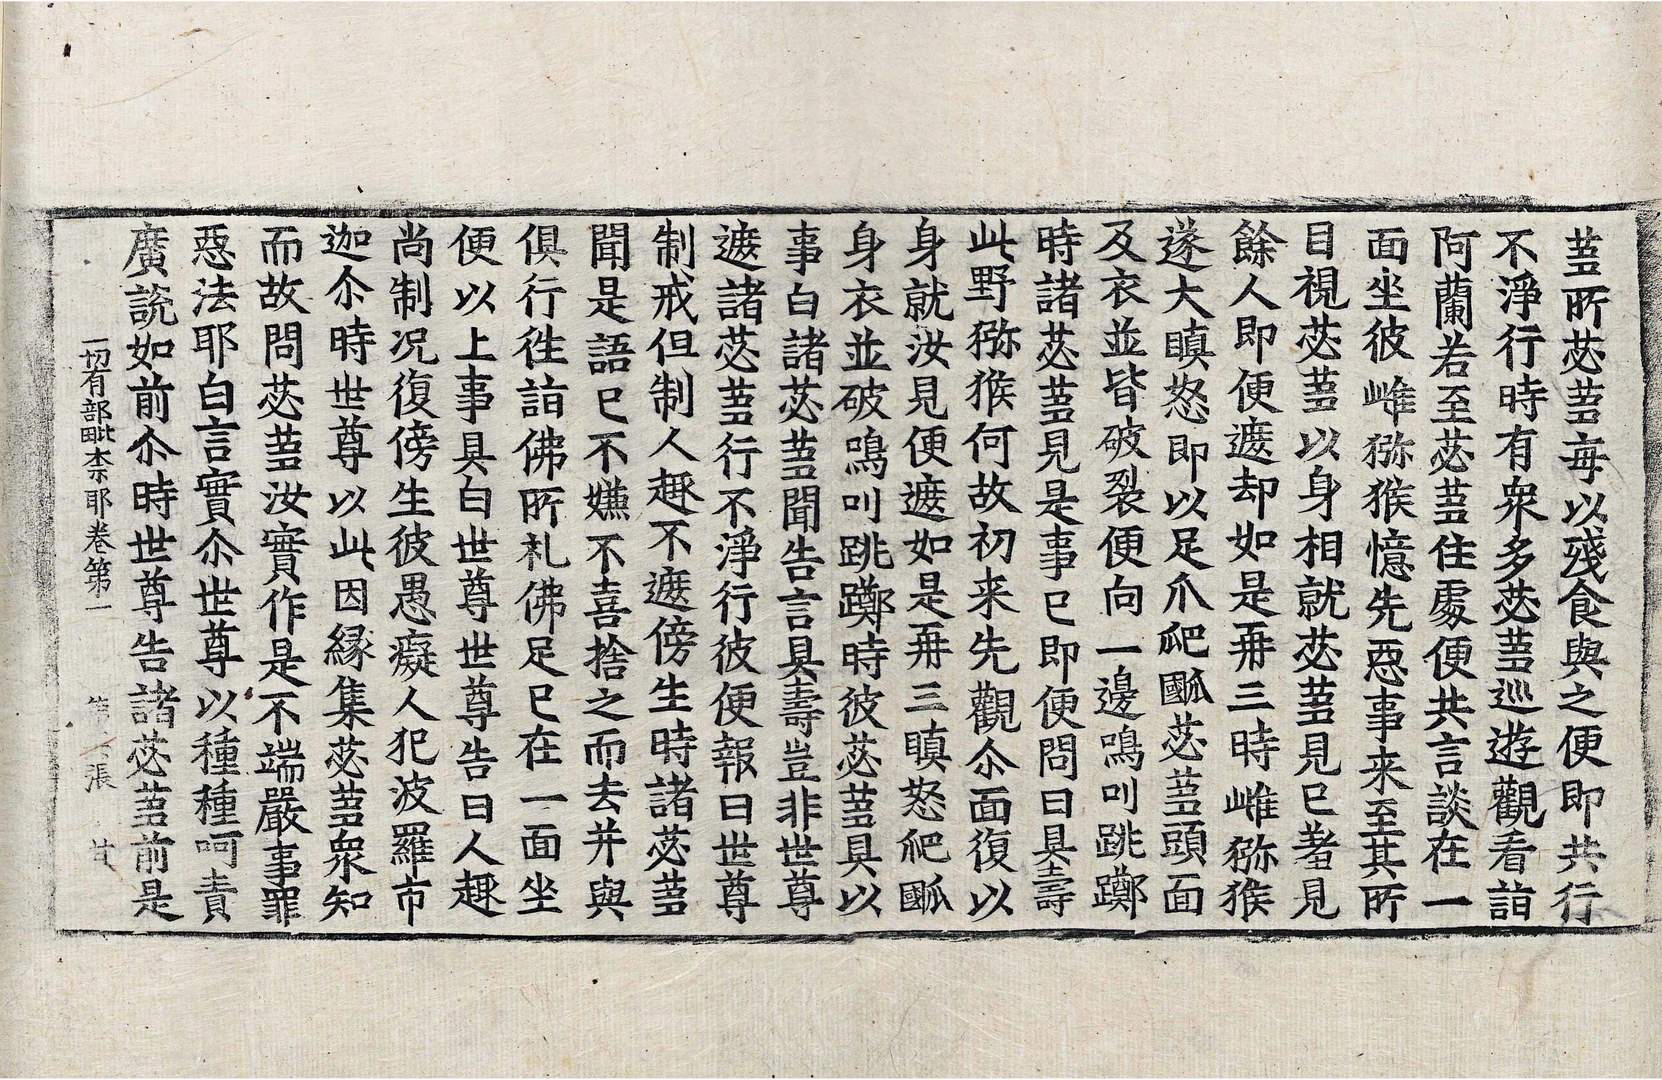 蒭所苾蒭每以殘食與之便即共行
不淨行時有衆多苾蒭巡遊觀看詣
阿蘭若至苾蒭住處便共言談在一
面坐彼雌猕猴憶先惡事来至其所
目視苾蒭以身相就苾蒭見已羞見
餘人即便遮却如是再三時雌猕猴
遂大瞋怒即以足爪爬㕟苾蒭頭面
及衣並皆破裂便向一邊鳴叫跳躑
時諸苾蒭見是事已即便問曰具壽
此野猕猴何故初来先觀尒面復以
身就汝見便遮如是再三瞋怒爬㕟
身衣並破鳴叫跳躑時彼苾蒭具以
事白諸苾蒭聞告言具壽豈非世尊
遮諸苾蒭行不淨行彼便報曰世尊
制戒但制人趣不遮傍生時諸苾蒭
聞是語已不嫌不喜捨之而去并與
俱行徃詣佛所礼佛足已在一面坐
便以上事具白世尊世尊告曰人趣
尚制况復傍生彼愚癡人犯波羅市
迦尒時世尊以此因縁集苾蒭衆知
而故問苾蒭汝實作是不端嚴事罪
惡法耶白言實尒世尊以種種呵責
廣説如前尒時世尊告諸苾蒭前是
一切有部毗柰耶卷第一 第 張 廿